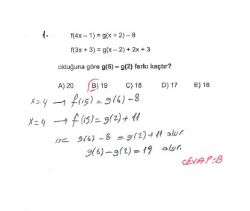 1.
f(4x – 1) = g(x + 2) – 8
f(3x + 3) = g(x – 2) + 2x + 3
olduğuna göre g(6) – g(2) farkı kaçtır?
A) 20 B) 19 C) 18 D) 17 E) 16
x=4 → f(15) = g(6) - 8
x=4 → f(15) = g(2) + 11
ise g(6) - 8 = g(2) + 11 olur.
g(6) - g(2) = 19 olur.
CEVAP:B